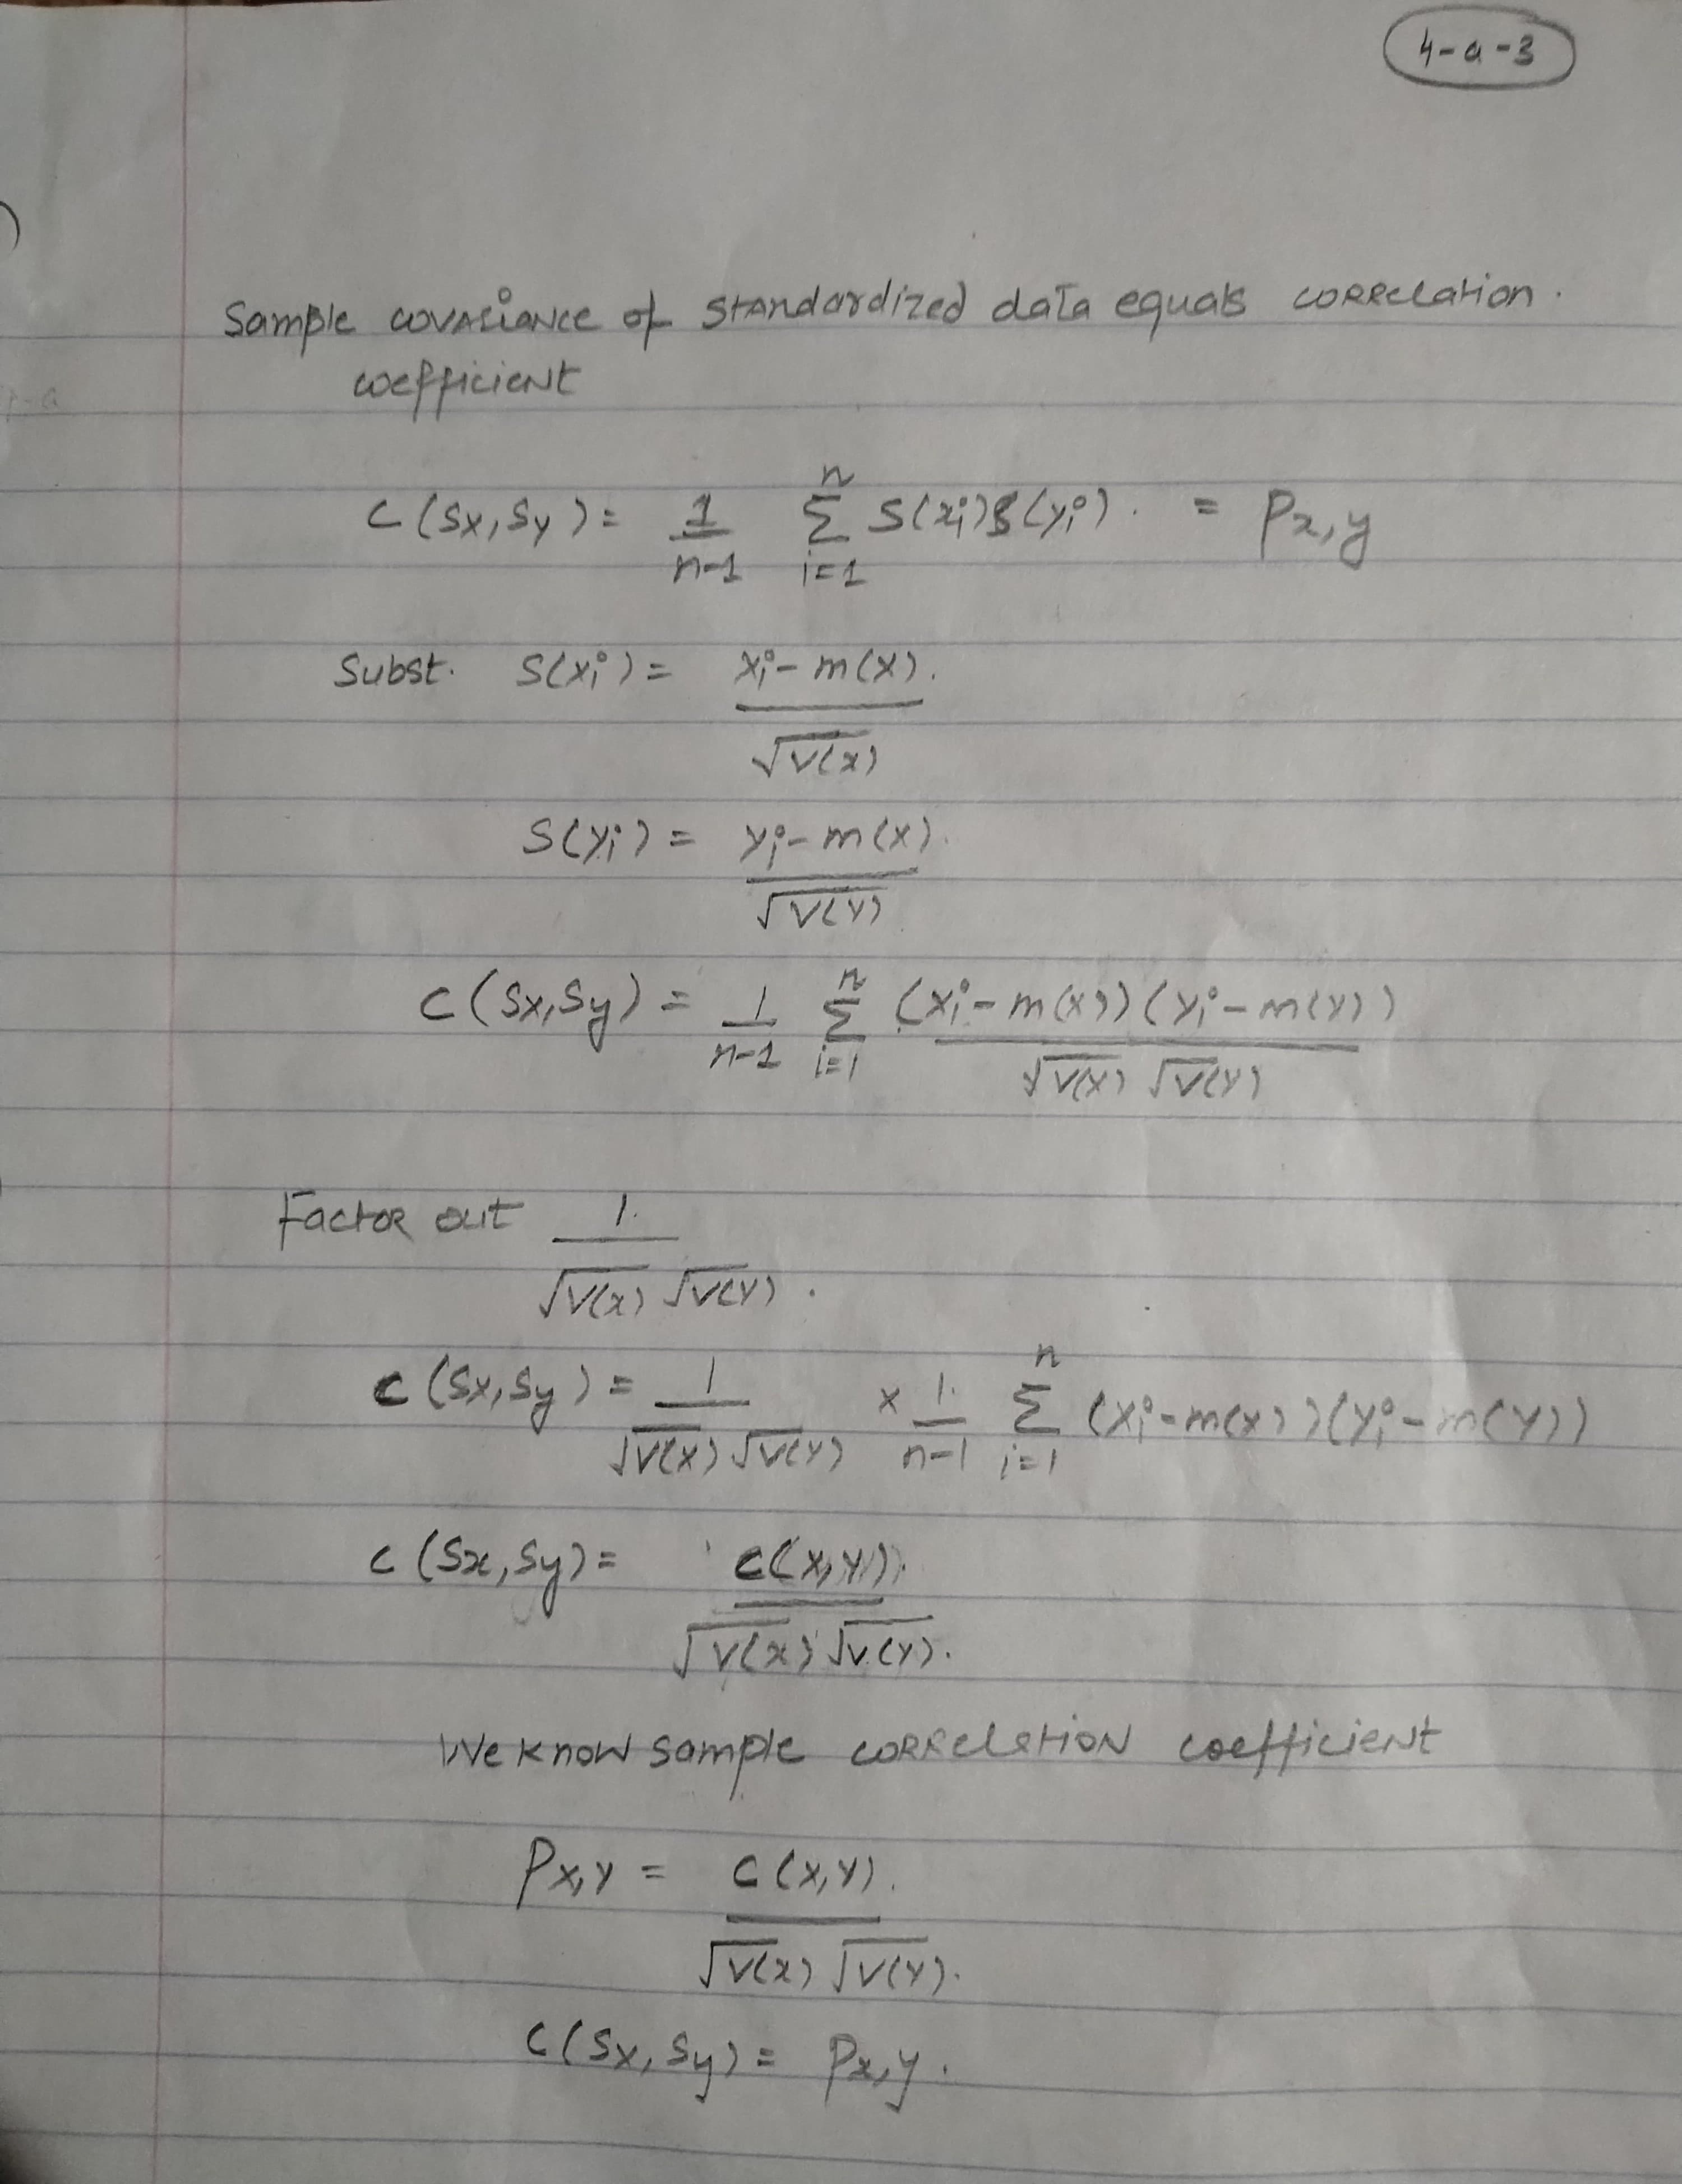 4-a-3
Sample covariance of standardized data equals correlation.
coefficient
C(Sx,Sy) = 1/(n-1) Σ_{i=1}^{n} S(xi)S(yi). = Px,y
Subst. S(xi) = xi - m(x). / √V(x)
S(yi) = yi - m(x). / √V(y)
C(Sx,Sy) = 1/(n-1) Σ_{i=1}^{n} (xi - m(x))(yi - m(y)) / √V(x) √V(y)
Factor out 1. / √V(x) √V(y).
C(Sx,Sy) = 1 / √V(x) √V(y) × 1./(n-1) Σ_{i=1}^{n} (xi - m(x))(yi - m(y))
C(Sx,Sy) = C(x,y). / √V(x) √V(y).
We know sample correlation coefficient
Px,y = C(x,y). / √V(x) √V(y).
C(Sx,Sy) = Px,y.